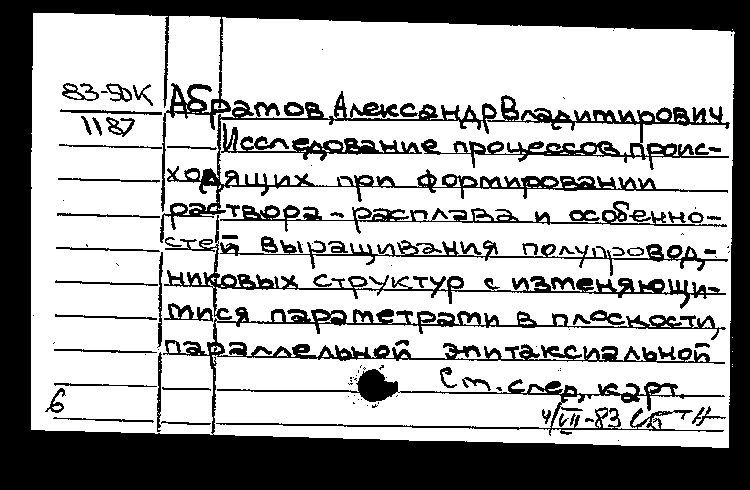 83-5ДК
1187
Абрамов, Александр Владимирович.
Исследование процессов, проис-
ходящих при формировании
раствора-расплава и особенно-
стей выращивания полупровод-
никовых структур с изменяющи-
мися параметрами в плоскости,
параллельной эпитаксиальной
См. след. карт.
6
4/VII-83